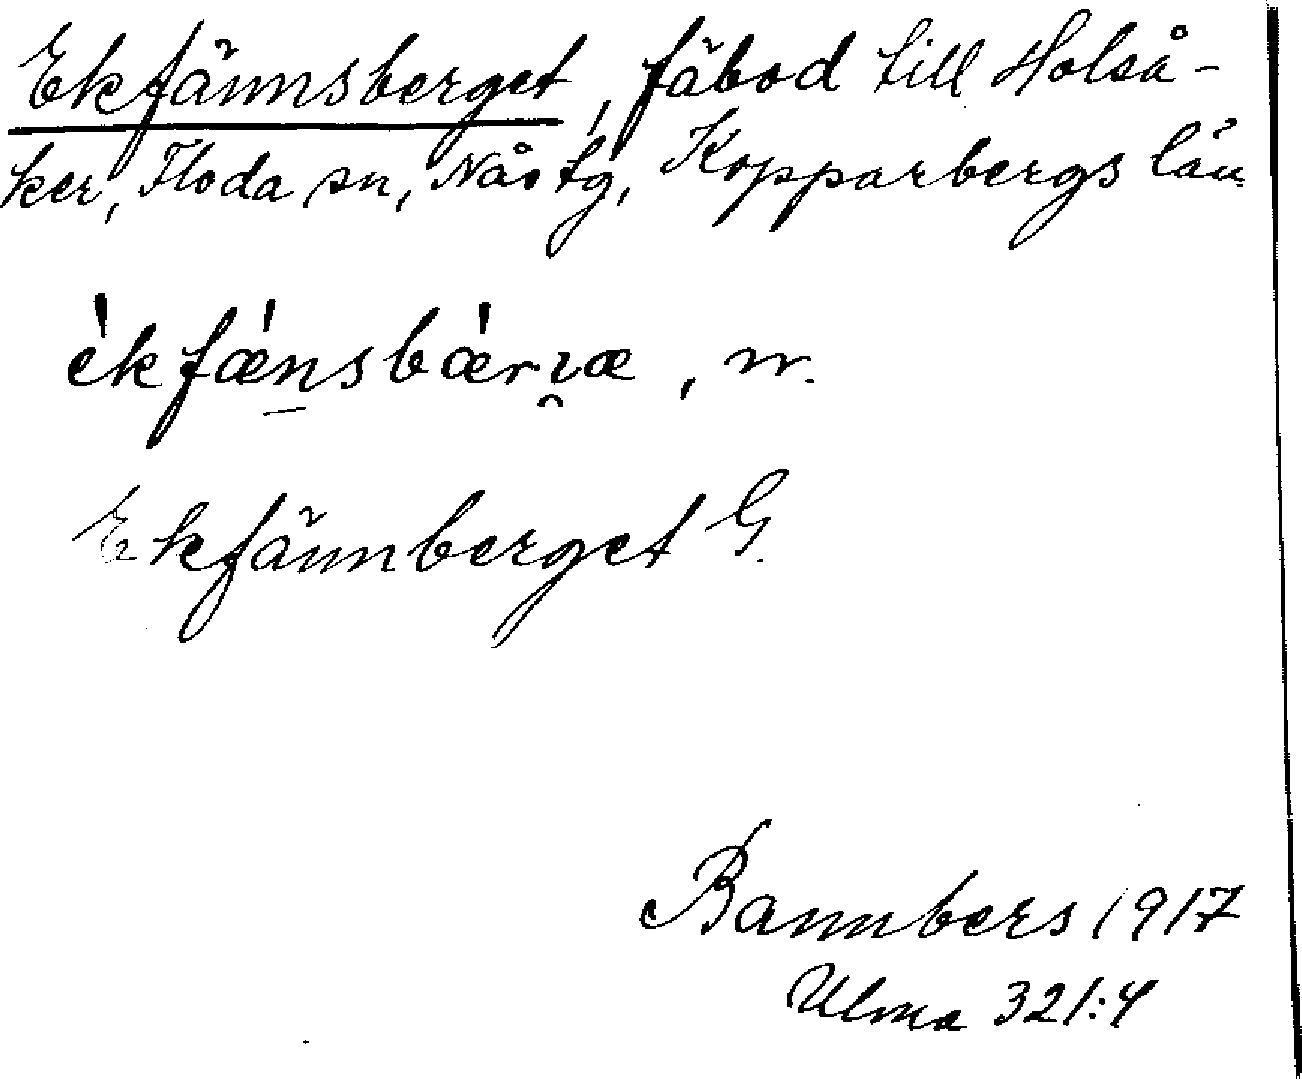 Ekfännsberget, fäbod till Holså-
ker, Floda sn, Nås tg, Kopparbergs län
ėkfænsbærıæ, n.
Ekfännberget G.
Bannbers 1917
Ulma 321:4